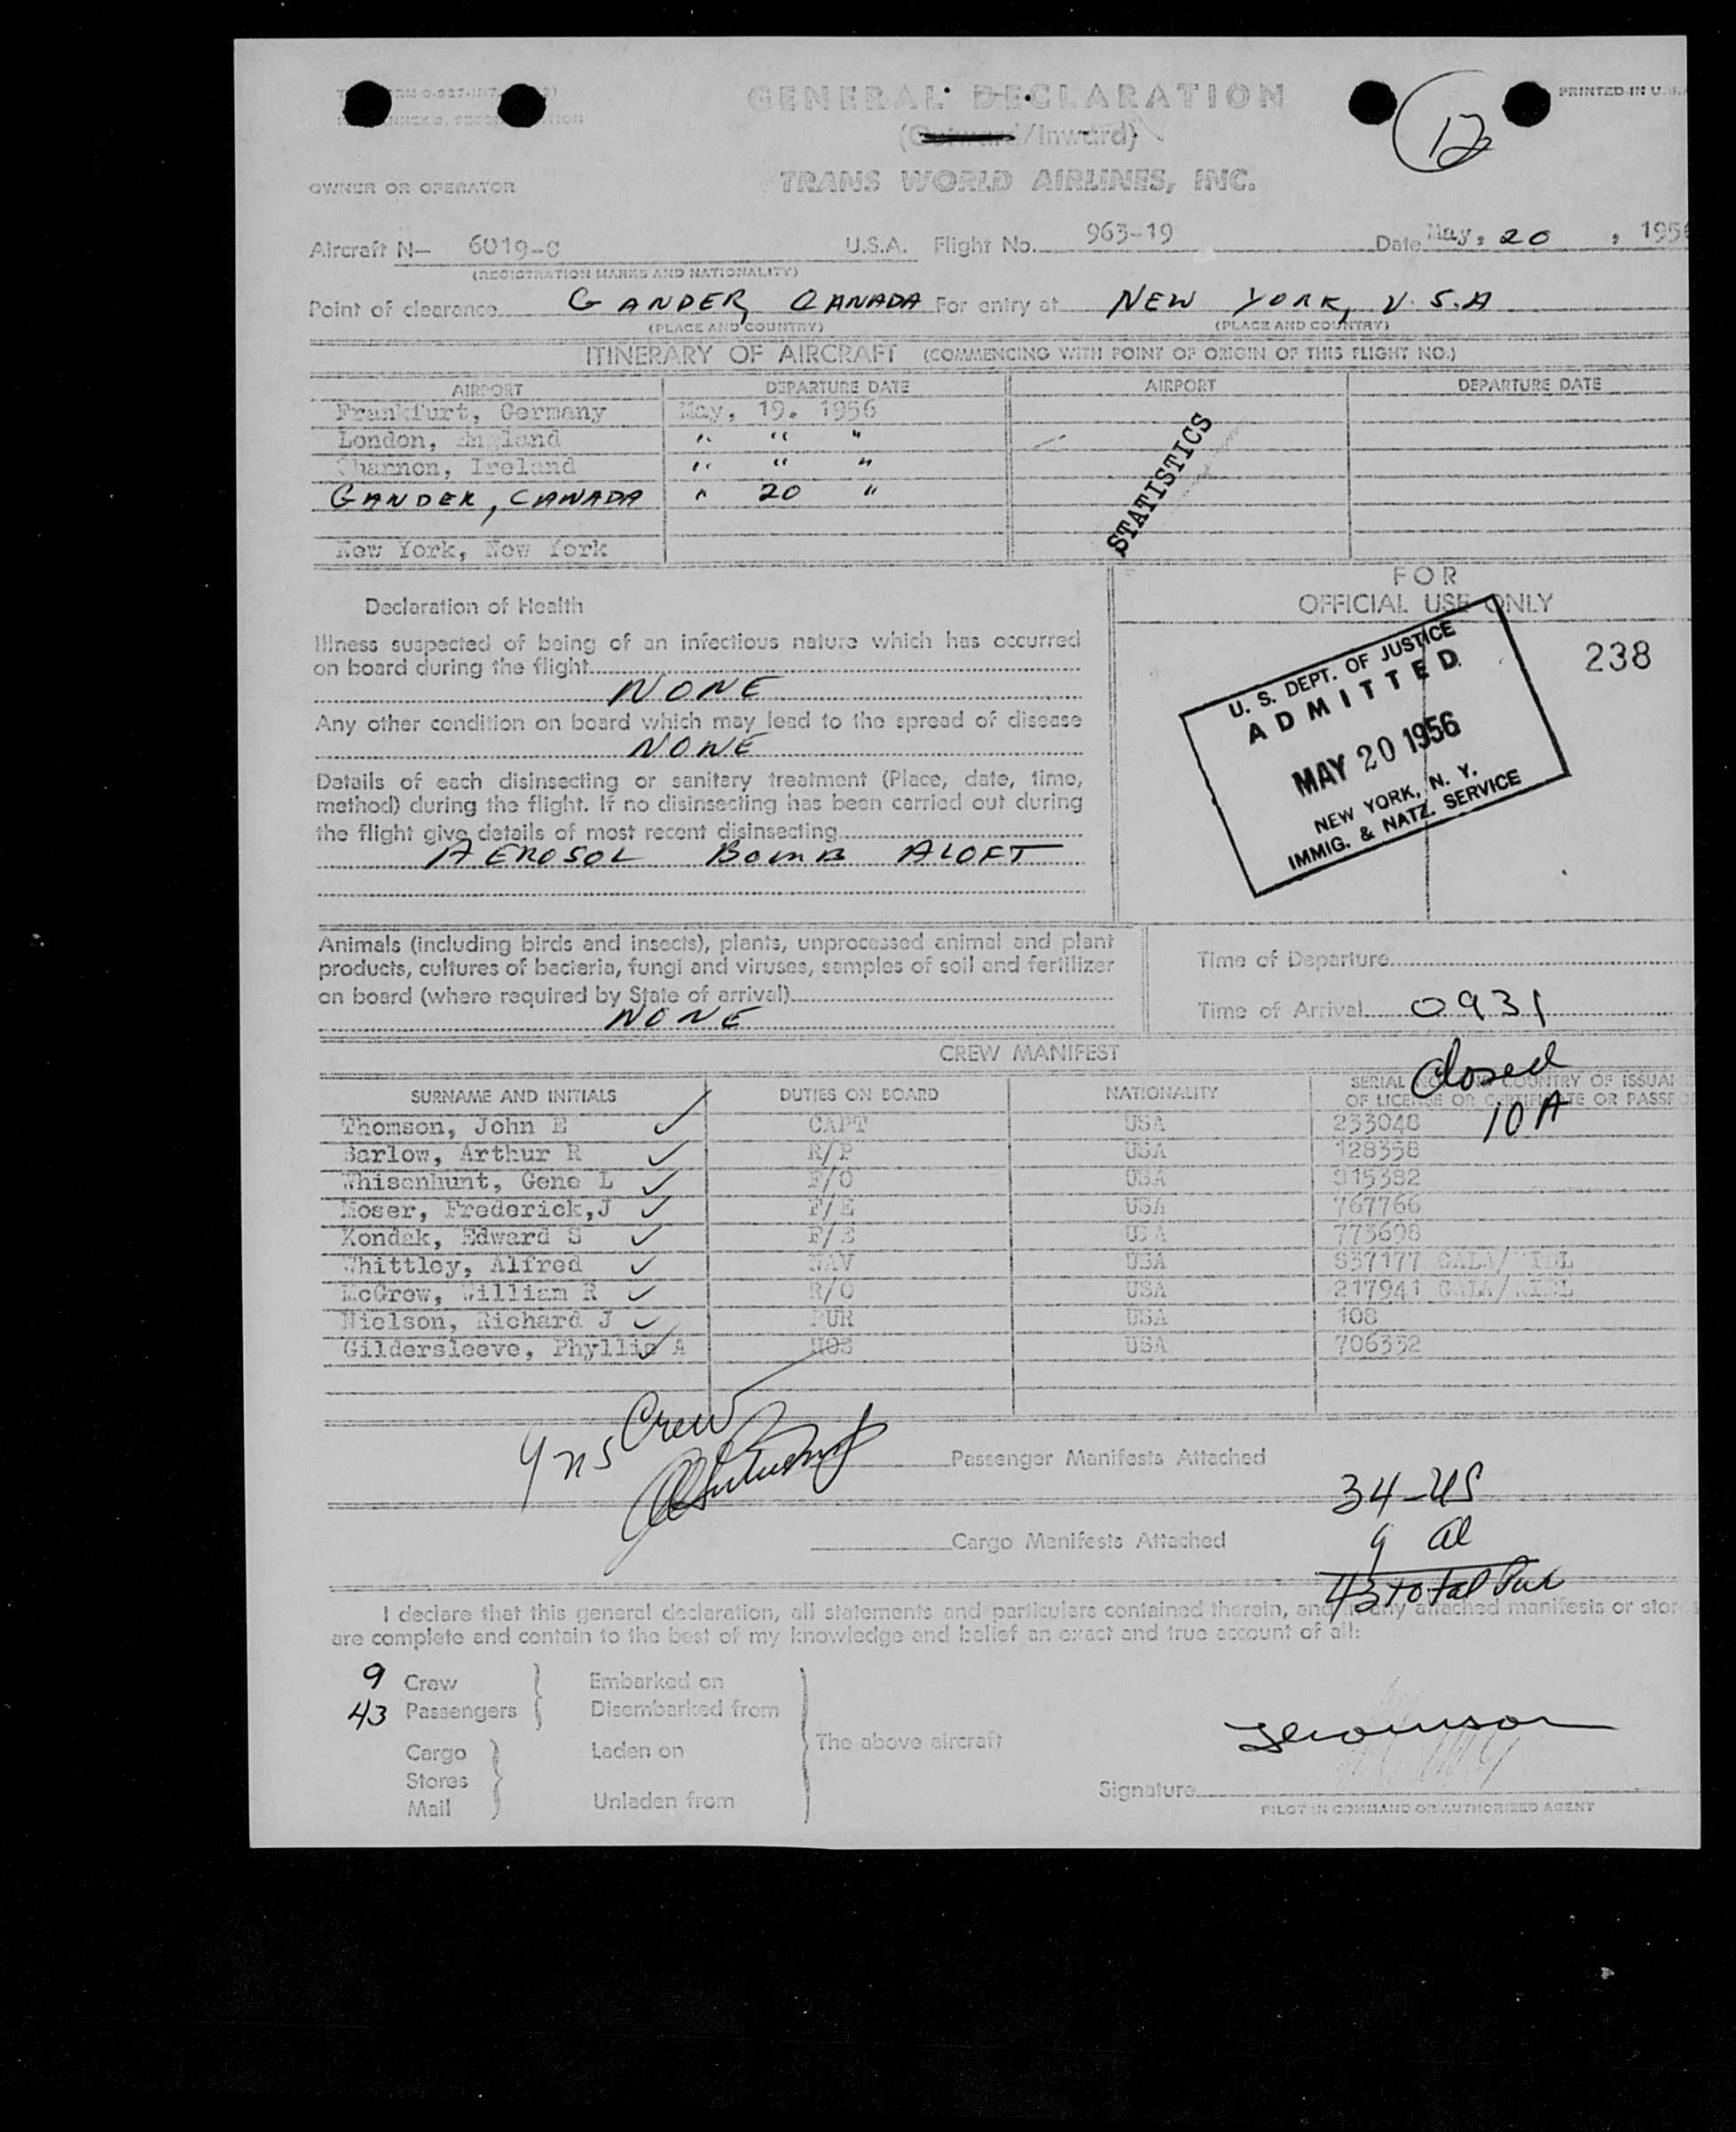 GENERAL DECLARATION
PRINTED IN U.S.A.
12
(Outward/Inward)
OWNER OR OPERATOR
TRANS WORLD AIRLINES, INC.
Aircraft N— 6019-C U.S.A. Flight No. 963-19 Date May, 20, 1956
(REGISTRATION MARKS AND NATIONALITY)
Point of clearance GANDER, CANADA For entry at NEW YORK, U.S.A
(PLACE AND COUNTRY) (PLACE AND COUNTRY)
ITINERARY OF AIRCRAFT (COMMENCING WITH POINT OF ORIGIN OF THIS FLIGHT NO.)
AIRPORT DEPARTURE DATE AIRPORT DEPARTURE DATE
Frankfurt, Germany May, 19. 1956
London, England " " "
Shannon, Ireland " " "
GANDER, CANADA " 20 "
New York, New York
STATISTICS
Declaration of Health
Illness suspected of being of an infectious nature which has occurred
on board during the flight
NONE
Any other condition on board which may lead to the spread of disease
NONE
Details of each disinsecting or sanitary treatment (Place, date, time,
method) during the flight. If no disinsecting has been carried out during
the flight give details of most recent disinsecting
AEROSOL BOMB ALOFT
FOR
OFFICIAL USE ONLY
238
U. S. DEPT. OF JUSTICE
ADMITTED
MAY 20 1956
NEW YORK, N. Y.
IMMIG. & NATZ. SERVICE
Animals (including birds and insects), plants, unprocessed animal and plant
products, cultures of bacteria, fungi and viruses, samples of soil and fertilizer
on board (where required by State of arrival)
NONE
Time of Departure
Time of Arrival 0931
Closed
10 A
CREW MANIFEST
SURNAME AND INITIALS DUTIES ON BOARD NATIONALITY SERIAL NO. AND COUNTRY OF ISSUANCE
OF LICENSE OR CERTIFICATE OR PASSPORT
Thomson, John E CAPT USA 233048
Barlow, Arthur R R/P USA 128358
Whisenhunt, Gene L F/O USA 315382
Moser, Frederick,J F/E USA 767766
Kondak, Edward S F/E USA 773698
Whittley, Alfred NAV USA 837177
McGrew, William R R/O USA 217941
Nielson, Richard J PUR USA 108
Gildersleeve, Phyllis A HOS USA 706352
9 ns Crew
Passenger Manifests Attached
34-US
Cargo Manifests Attached
9 al
43 total Pax
I declare that this general declaration, all statements and particulars contained therein, and in any attached manifests or stores
are complete and contain to the best of my knowledge and belief an exact and true account of all:
9 Crew Embarked on
43 Passengers Disembarked from
The above aircraft
Cargo Laden on
Stores
Mail Unladen from
Thomson
Signature
PILOT IN COMMAND OR AUTHORIZED AGENT